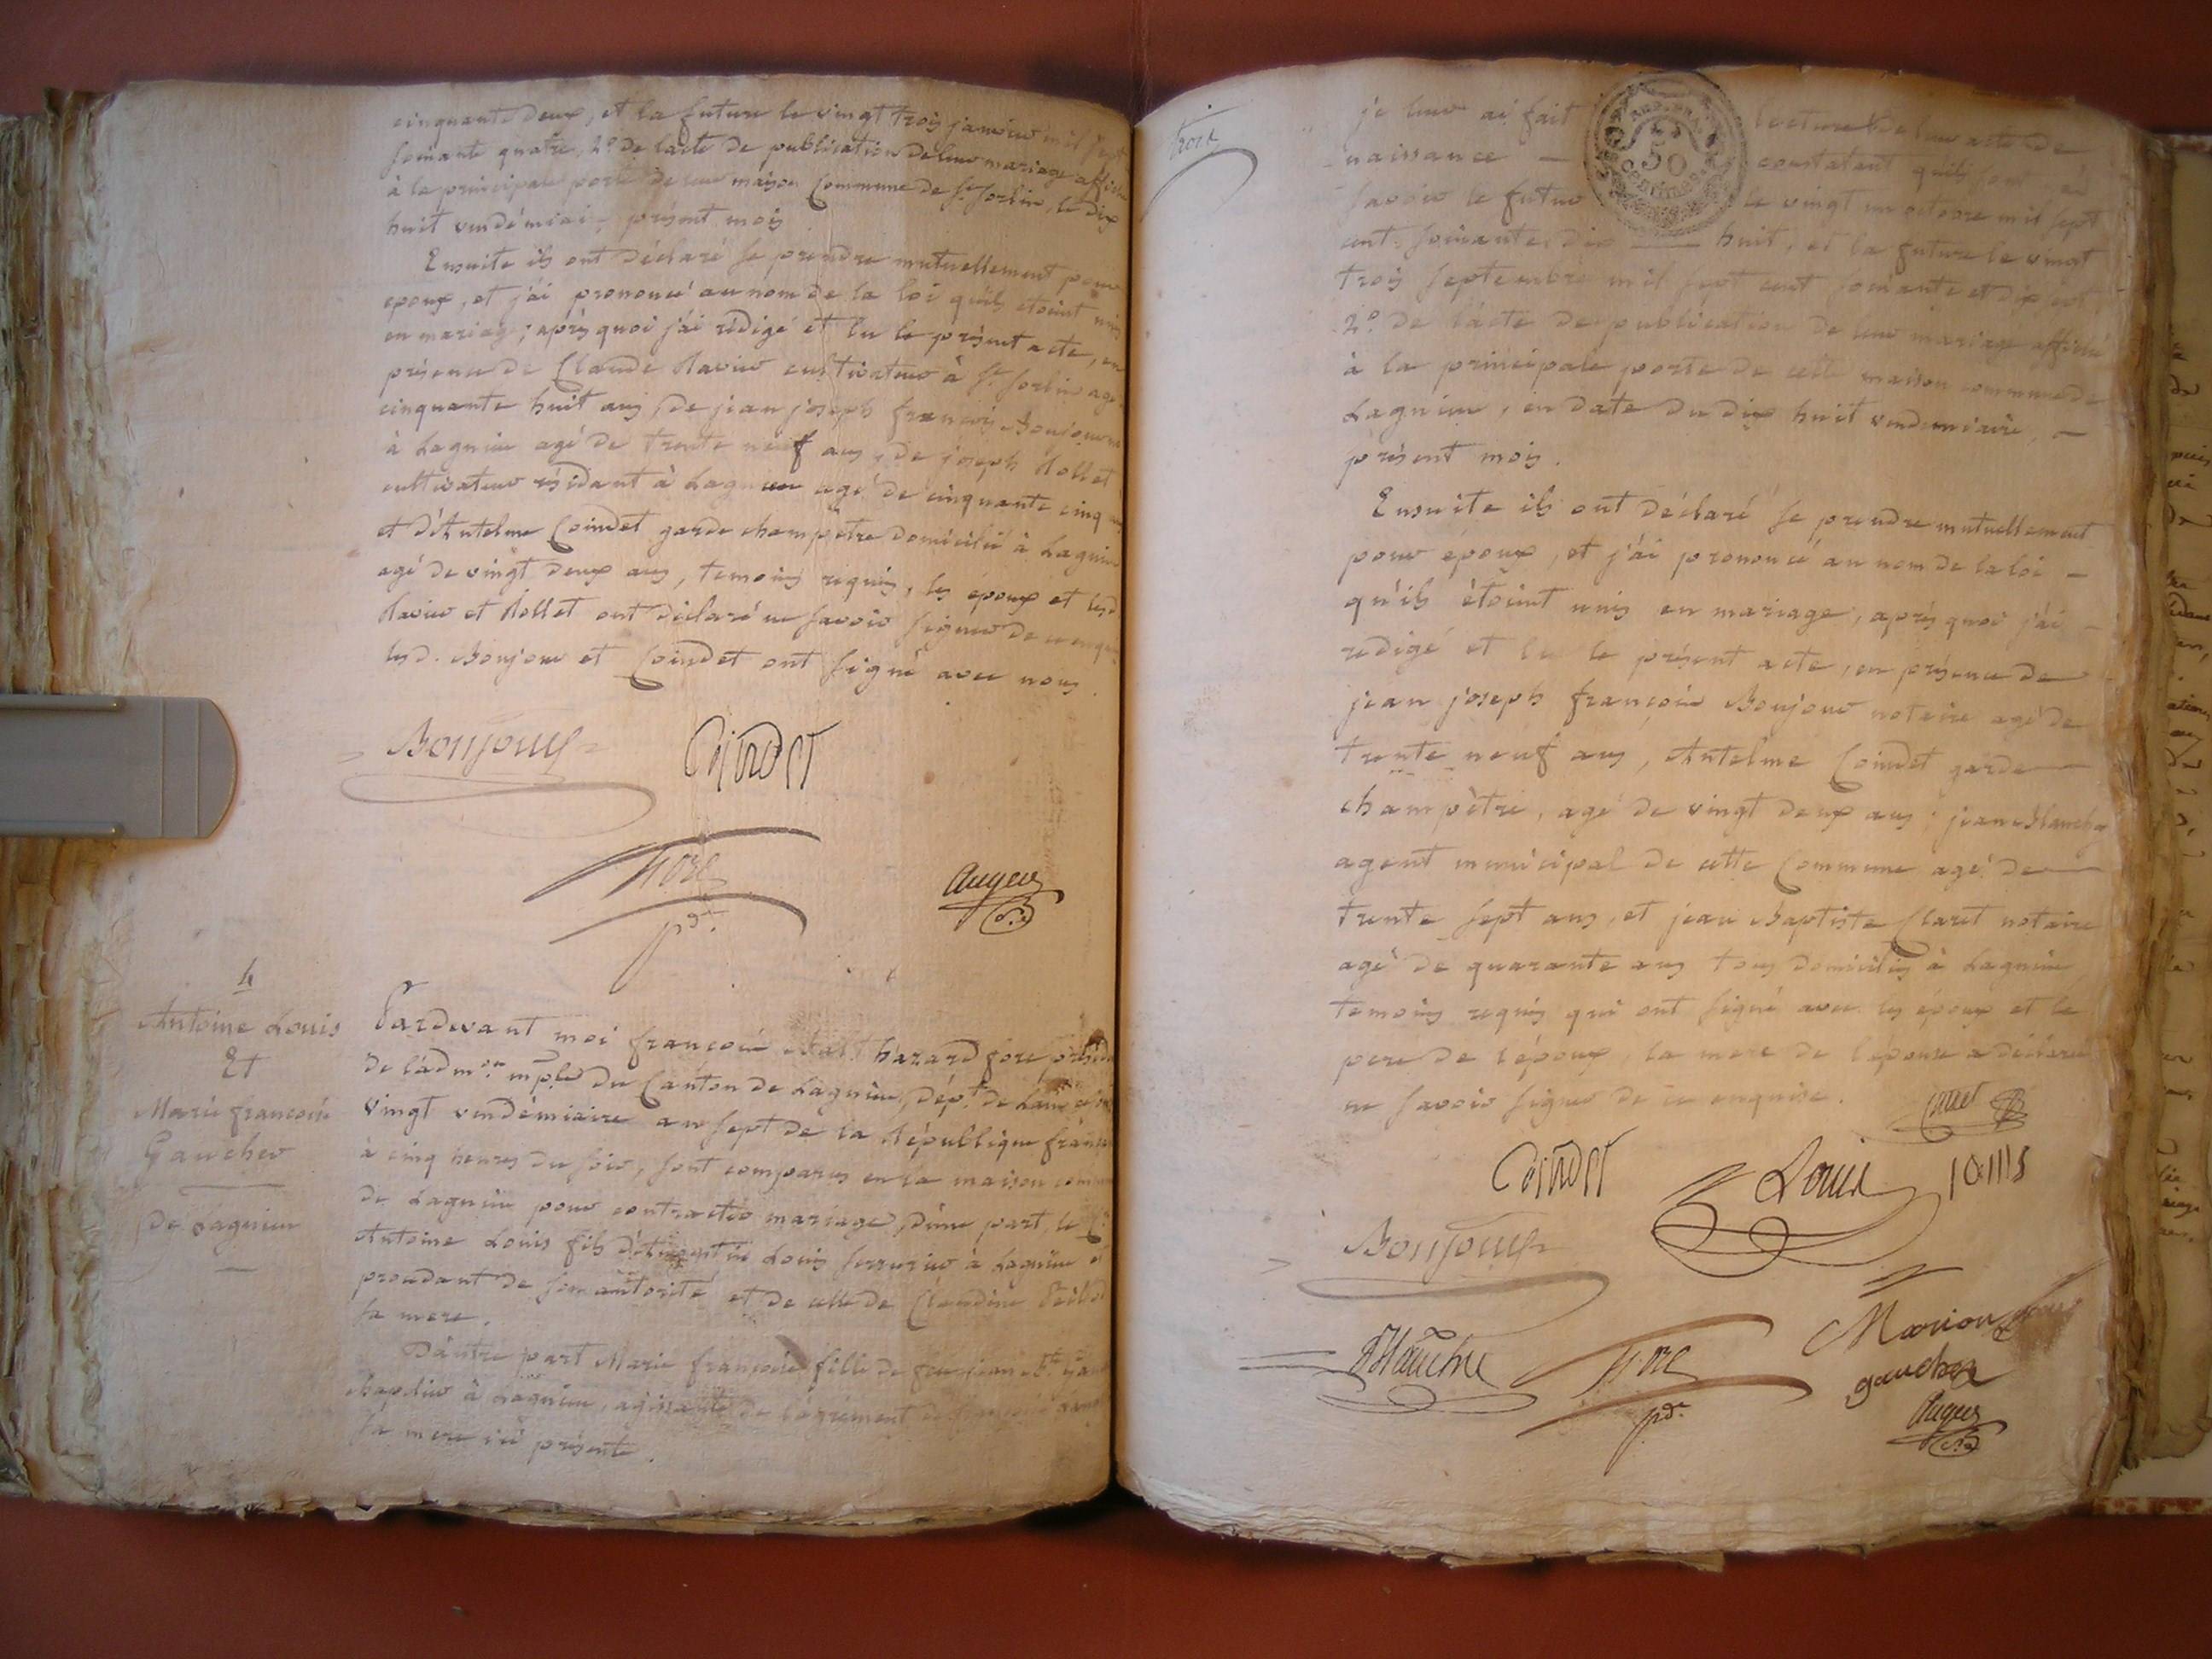 cinquante deux, et la future le vingt trois janvier mil sept
soixante quatre, 2.° de lacte de publication de leur mariage affiché
à la principale porte de leur maison Commune de St. Sorlin, le dix
huit vendémiai- présent mois
Ensuite ils ont déclaré se prendre mutuellement pour
epoux, et j'ai prononcé au nom de la loi qu'ils etoint unis
en mariage; après quoi j'ai rédigé et lu le présent acte, en
présence de Claude Ravier cultivateur à St. Sorlin agé
cinquante huit ans, de jean joseph françois Bonjour
à Lagnieu agé de trente neuf ans, de joseph Rollet
cultivateur résidant à Lagnieu agé de cinquante cinq
et d'Antelme Coindet garde champêtre domicilié à Lagnieu
agé de vingt deux ans, temoins requis, les époux et lesd.
Ravier et Rollet ont déclaré ne savoir signer de ce enquis
lesd. Bonjour et Coindet ont signé avec nous.
Bonjour
Coindet
fore
pdt.
Auger
4
Antoine Louis
Et
Marie francoise
Gaucher
De Lagnieu
Pardevant moi françois Balt. hazard fore présid
de l'adm.on mple du Canton de Lagnieu, dépt. de Lain ce
vingt vendémiaire an sept de la République françai
à cinq heures du soir, sont comparus en la maison commune
de Lagnieu pour contracter mariage, d'une part, le C.
Antoine Louis fils d' Louis serrurier à Lagnieu et
procédant de son autorité et de celle de Claudine
sa mere.
D'autre part Marie françoise fille de feu jean Bte.
chapelier à Lagnieu, agissante de l'agrément de
sa mere ici présente.
trois
je leur ai fait lecture de leur acte de
naissance — constatant qu'ils sont né
savoir le futur le vingt un octobre mil sept
cent soixante dix — huit, et la future le vingt
trois septembre mil sept cent soixante et dix sept,
2.° de l'acte de publication de leur mariage affiché
à la principale porte de cette maison commune de
Lagnieu, en date du dix huit vendemiaire, —
présent mois.
Ensuite ils ont déclaré se prendre mutuellement
pour époux, et j'ai prononcé au nom de la loi —
qu'ils étoint unis en mariage, après quoi j'ai —
redigé et lu le présent acte, en présence de
jean joseph françois Bonjour notaire agé de
trente neuf ans, Antelme Coindet garde
champètre, agé de vingt deux ans; jean Blanchy
agent municipal de cette Commune agé de
trente sept ans, et jean Baptiste Claret notaire
agé de quarante ans tous domiciliés à Lagnieu
temoins requis qui ont signé avec les époux et le
pere de l'époux, la mere de l'épouse a déclaré
ne savoir signer de ce enquise.
Claret
Coindet
Louis
louis
Bonjour
Blanchy
fore
pdt.
Marion
gaucher
Auger
50
centimes